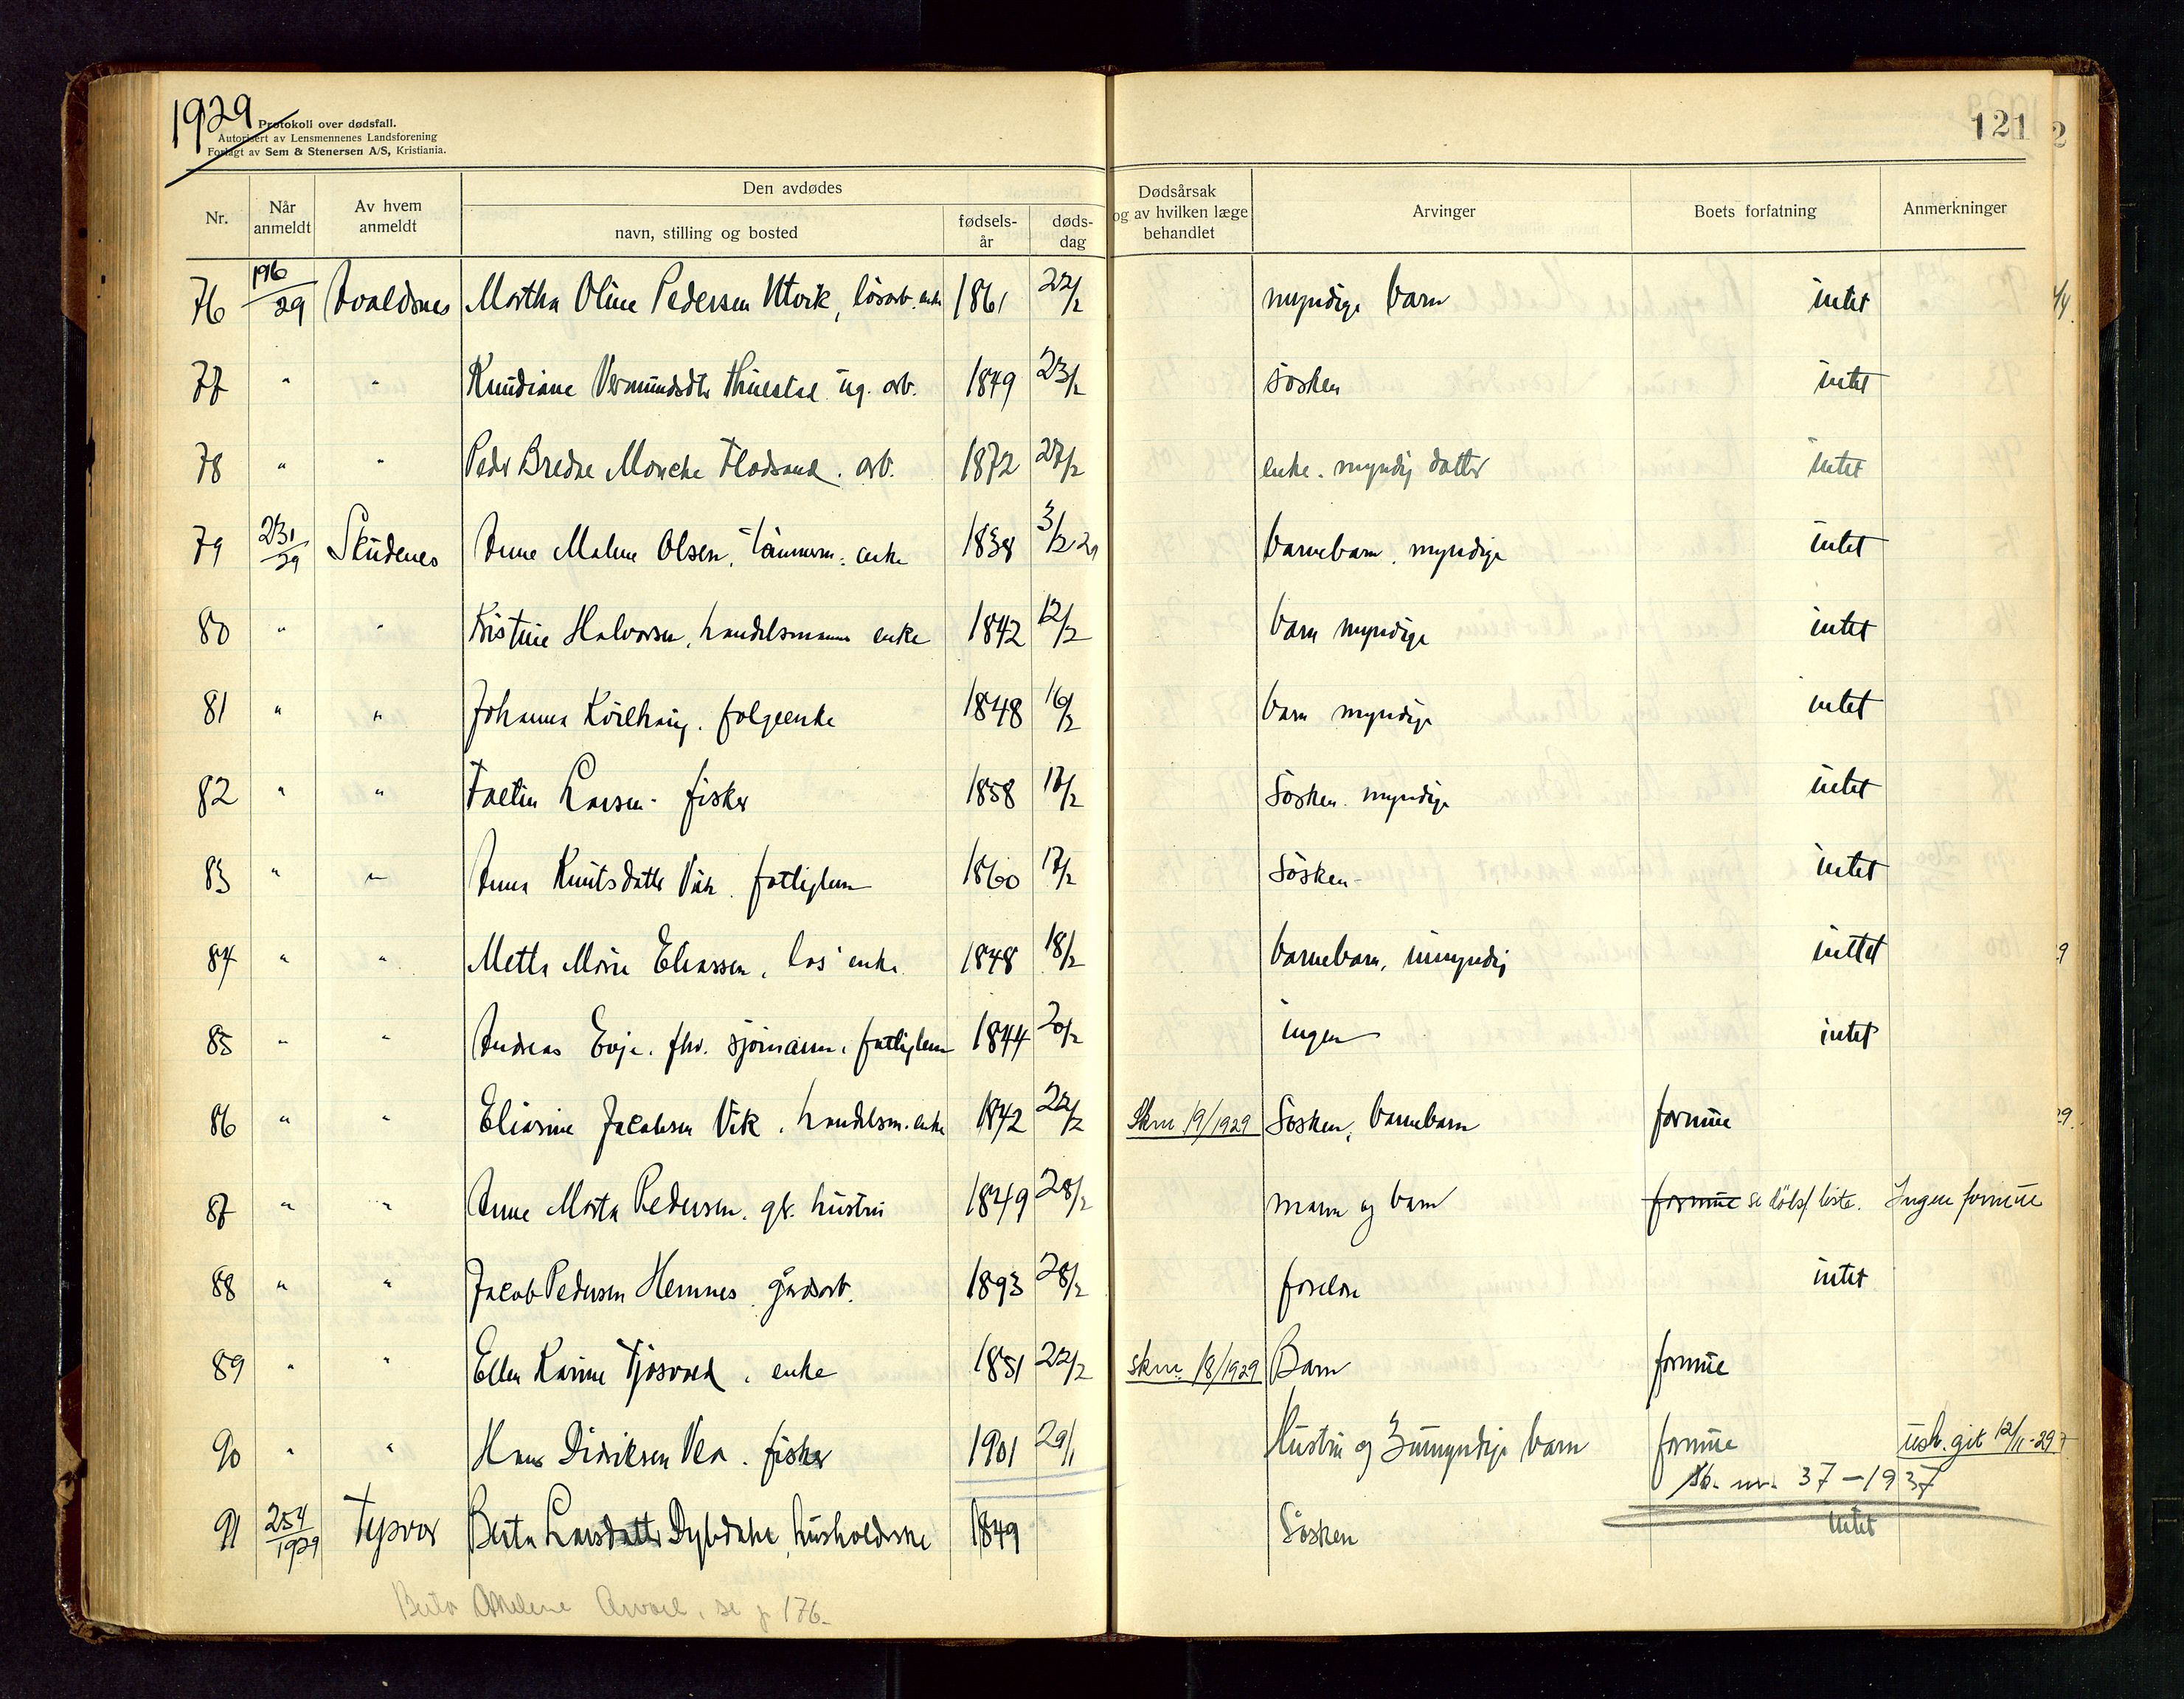 1929
Protokoll over dødsfall.
Autorisert av Lensmennenes Landsforening
Forlagt av Sem & Stenersen A/S, Kristiania.
121
Nr. Når anmeldt Av hvem anmeldt Den avdødes navn, stilling og bosted fødsels-år døds-dag Dødsårsak og av hvilken læge behandlet Arvinger Boets forfatning Anmerkninger
76 196/29 Avaldsnes Martha Oline Pedersen Utvik, løsarb. enke 1861 22/2 myndige barn intet
77 " " Knudiane Vermundsdtr ug. arb. 1849 23/2 søsken intet
78 " " Peder Bredre Munche Flodsand. arb. 1872 27/2 enke. myndig datter intet
79 231/29 Skudenes Anne Malene Olsen, tømmerm. enke 1838 3/2 29 barnebarn. myndige intet
80 " " Kristine Halvorsen, handelsmanns enke 1842 12/2 barn myndige intet
81 " " Johanna folgeenke 1848 16/2 barn myndige intet
82 " " Larsen - fisker 1858 17/2 Søsken. myndige intet
83 " " Anna Knutsdatter Vik. fattiglem 1860 17/2 Søsken - intet
84 " " Mette Marie Eliassen, los enke 1848 18/2 barnebarn, umyndig inttet
85 " " Andreas Evje. fhv. sjømann. fattiglem 1844 20/2 ingen intet
86 " " Eliasine Jacobsen Vik. handelsm. enke 1842 22/2 Skm 19/1929 Søsken, barnebarn formue
87 " " Anne Marta Pedersen. gk. hustru 1849 28/2 mann og barn formue se dødsf. liste. Ingen formue
88 " " Jacob Pedersen Hemnes gårdsarb. 1893 28/2 foreldre intet
89 " " Ellen Karine Tjøsvold, enke 1851 22/2 skm. 18/1929 Barn formue
90 " " Hans Diriksen Vea. fisker 1901 29/1 Hustru og 3 umyndige barn formue usk. git 12/11-29
Sk. nr. 37-1937
91 254/1929 Tysvær Berta Larsdatter Dybdahl, husholderske 1849 Søsken intet
Berta Arvoll, se p 176.